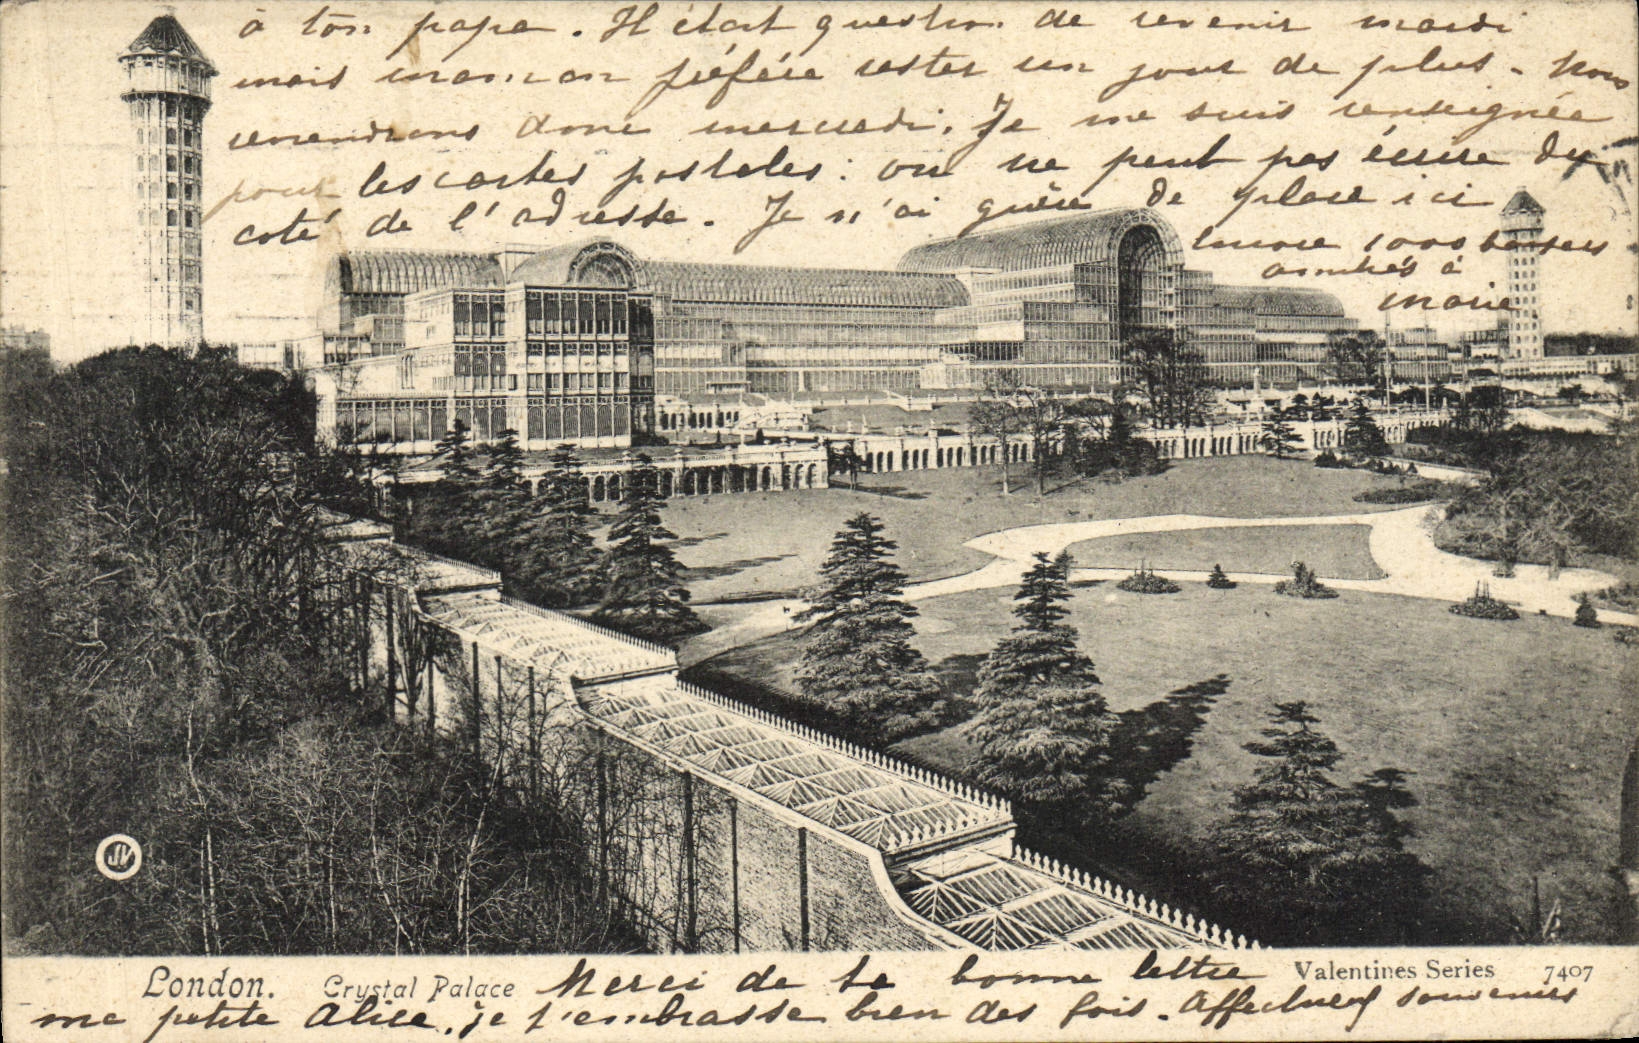 à ton papa. Il était question de revenir mardi
mais maman préfère rester un jour de plus - Nous
reviendrons donc mercredi. Je me suis renseignée
pour les cartes postales : on ne peut pas écrire du
coté de l'adresse. Je n'ai guère de place ici
encore 1000 baisers
amitiés à
marie
JV
London. Crystal Palace Merci de ta bonne lettre Valentines Series 7407
ma petite Alice, je t'embrasse bien des fois. Affectueux souvenirs